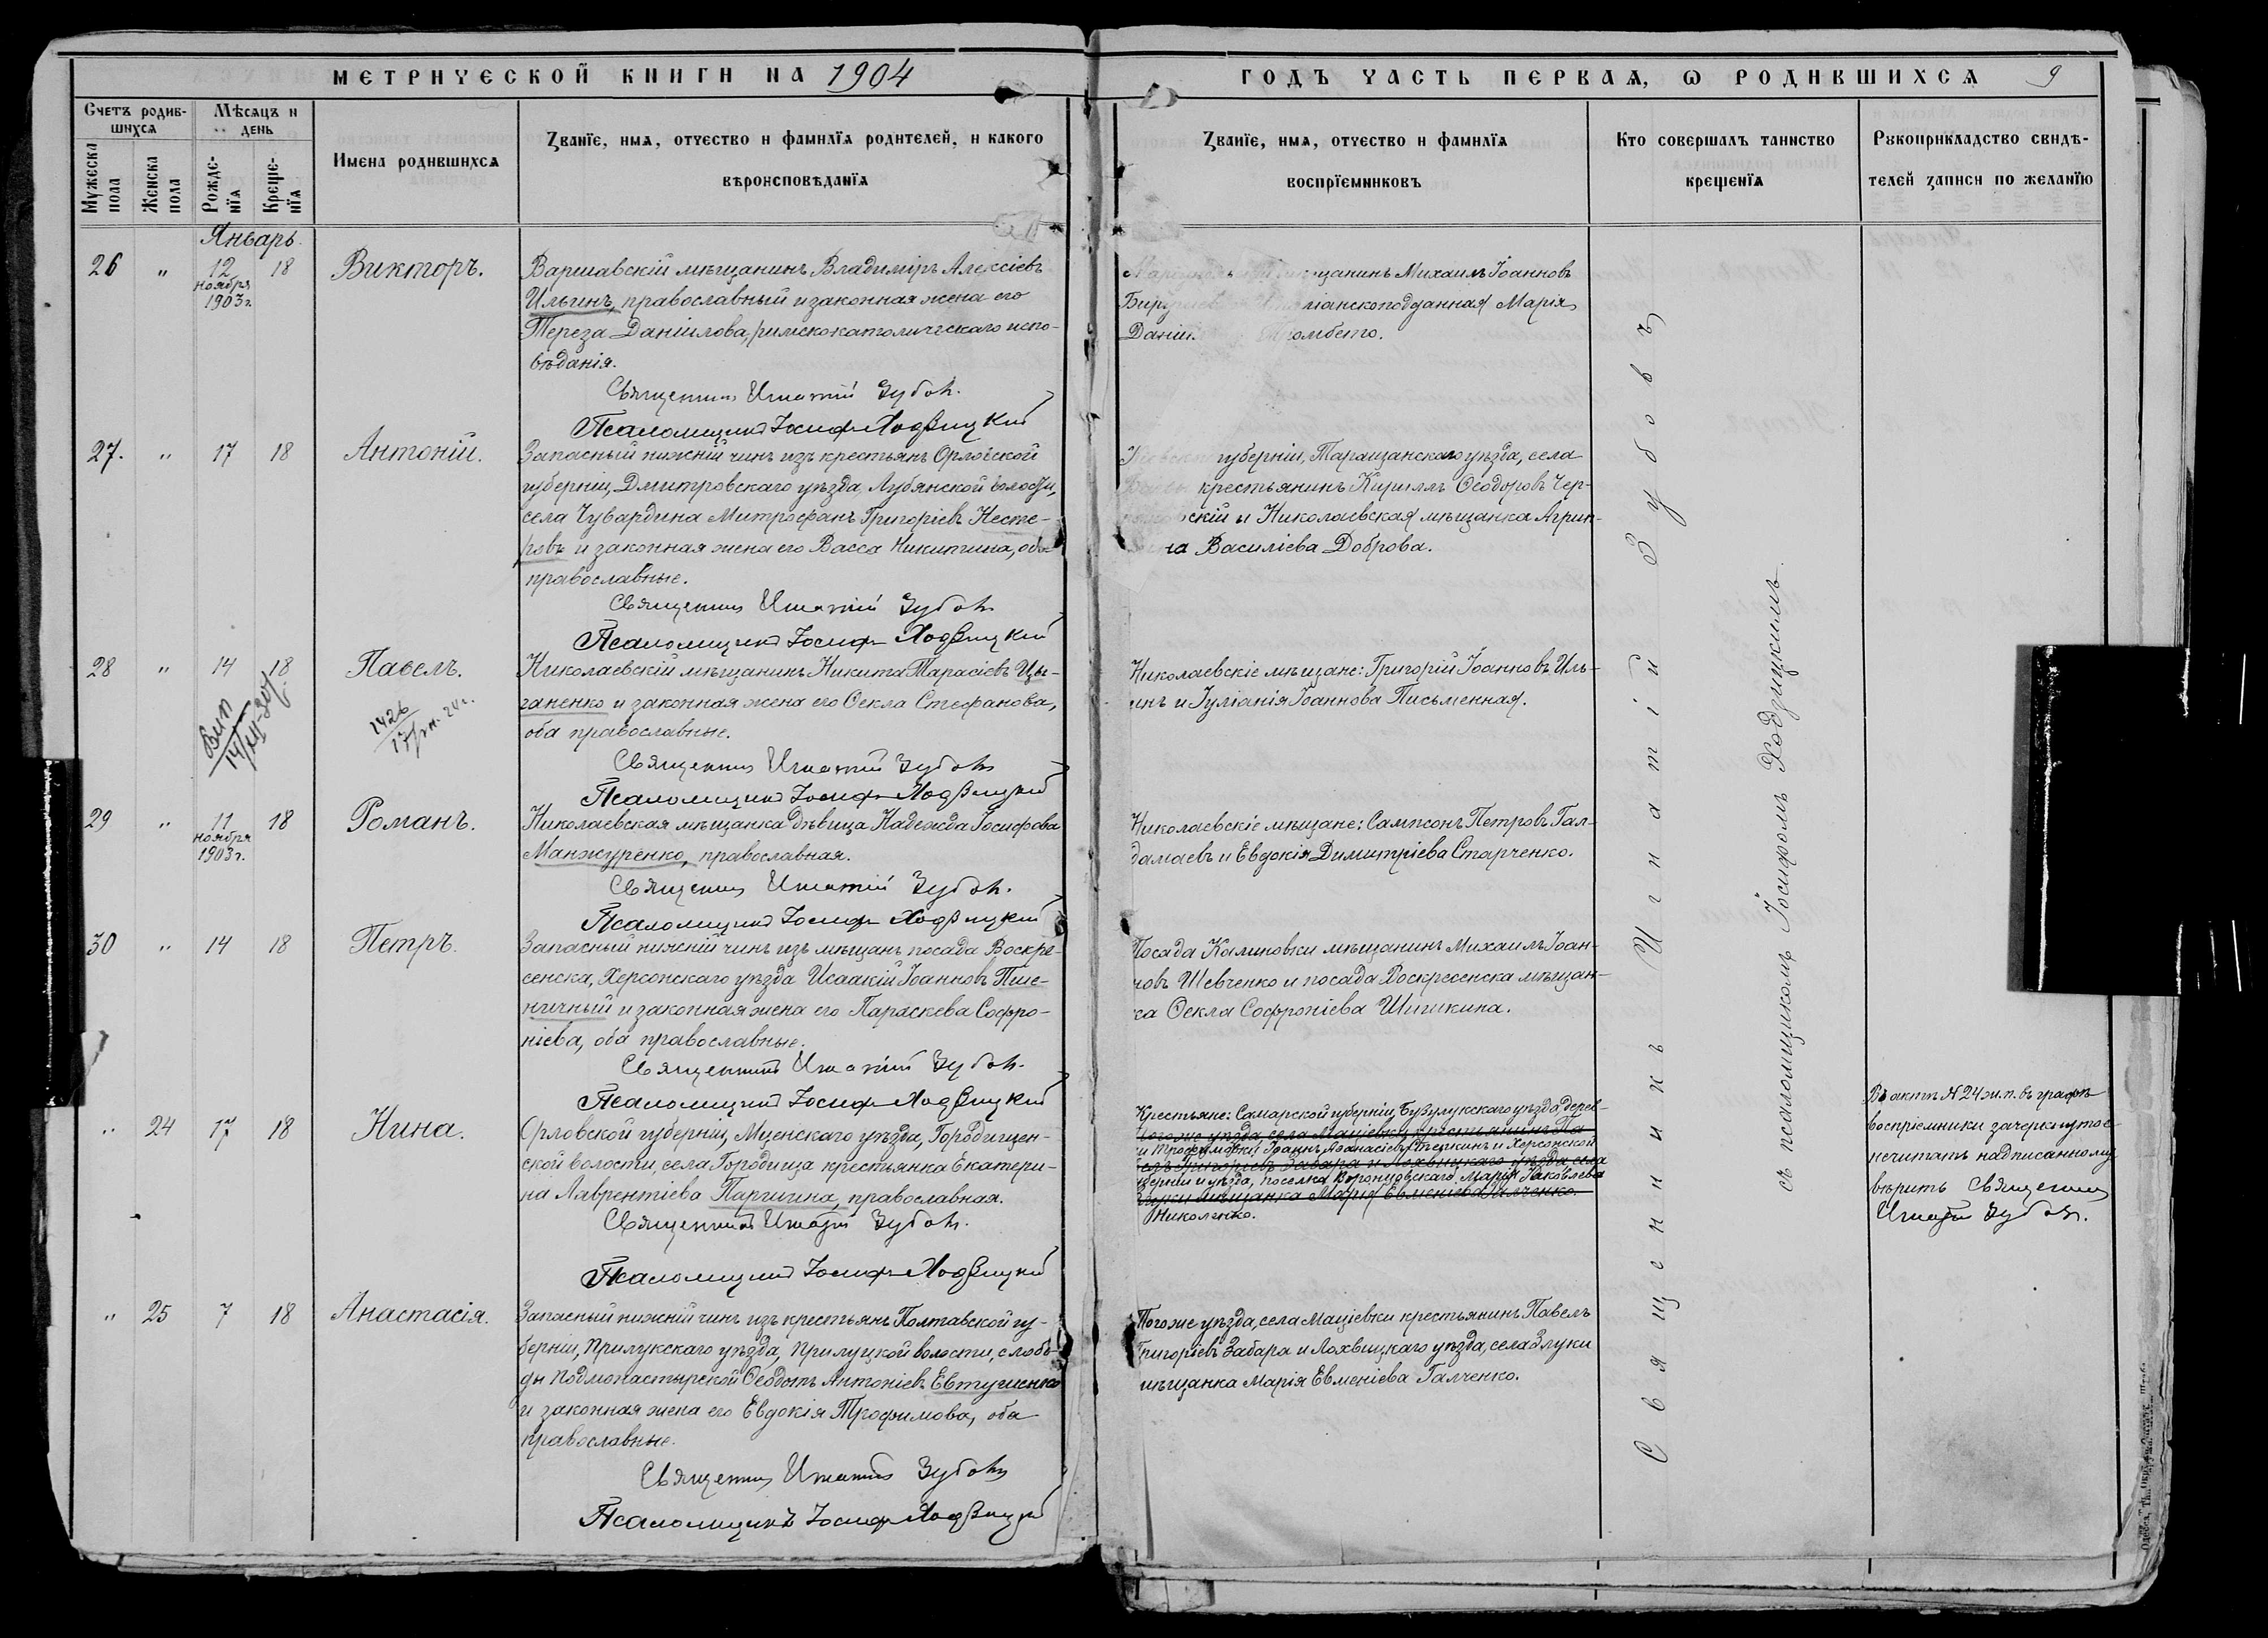 МЕТРИЧЕСКОЙ КНИГИ НА 1904
ГОДЪ ЧАСТЬ ПЕРВАЯ, Ѡ РОДИВШИХСЯ 9
Счетъ родив-
шихся
Мѣсяцъ и
день
Мужеска
пола
Женска
пола
Рожде-
нїя
Креще-
нїя
Имена родившихся
Званїе, имя, отчество и фамилїя родителей, и какого
вѣроисповѣданїя
Званїе, имя, отчество и фамилїя
воспрїемниковъ
Кто совершалъ таинство
крещенїя
Рукоприкладство свидѣ-
телей записи по желанїю
Январь.
26 " 12 18 Викторъ.
ноября
1903г.
Варшавскій мѣщанинъ Владиміръ Алексіевъ
Ильинъ, православный и законная жена его
Тереза Даніилова, римскокатолическаго испо-
вѣданія.
Священникъ Игнатій Зубовъ.
Псаломщикъ Іосифъ Ходзицкій
щанинъ Михаилъ Іоанновъ
ліанскоподданная Марія
Даніи ломбето.
27. " 17 18 Антоній.
Запасный нижній чинъ изъ крестьянъ Орловской
губерніи, Дмитровскаго уѣзда, Лубянской волости,
села Чувардина Митрофанъ Григоріевъ Несте-
ровъ и законная жена его Васса Никитина, оба
православные.
Священникъ Игнатій Зубовъ
Псаломщикъ Іосифъ Ходзицкій
губерніи, Таращанскаго уѣзда, села
крестьянинъ Кириллъ Ѳеодоровъ Чер-
скій и Николаевская мѣщанка Агрип-
на Василіева Доброва.
28 " 14 18 Павелъ.
1426
Николаевскій мѣщанинъ Никита Тарасіевъ Цы-
ганенко и законная жена его Ѳекла Стефанова,
оба православные.
Священникъ Игнатій Зубовъ
Псаломщикъ Іосифъ Ходзицкій
Николаевскіе мѣщане: Григорій Іоанновъ Иль-
инъ и Іуліанія Іоаннова Письменная.
29 " 11 18 Романъ.
ноября
1903г.
Николаевская мѣщанка дѣвица Надежда Іосифова
Манжуренко, православная.
Священникъ Игнатій Зубовъ.
Псаломщикъ Іосифъ Ходзицкій
Николаевскіе мѣщане: Сампсонъ Петровъ Гал-
дамаевъ и Евдокія Димитріева Старченко.
30 " 14 18 Петръ.
Запасный нижній чинъ изъ мѣщанъ посада Воскре-
сенска, Херсонскаго уѣзда Исаакій Іоанновъ Пше-
ничный и законная жена его Параскева Софро-
ніева, оба православные.
Священникъ Игнатій Зубовъ.
Псаломщикъ Іосифъ Ходзицкій
Посада Калиновки мѣщанинъ Михаилъ Іоан-
новъ Шевченко и посада Воскресенска мѣщан-
ка Ѳекла Софроніева Шишкина.
" 24 17 18 Нина.
Орловской губерніи, Мценскаго уѣзда, Городищен-
ской волости, села Городища крестьянка Екатери-
на Лаврентіева Паршина, православная.
Священникъ Игнатій Зубовъ.
Псаломщикъ Іосифъ Ходзицкій
Крестьяне: Самарской губерніи, Бузулукскаго уѣзда, дерев-
Тогоже уѣзда, села Маціевки крестьянинъ Па-
ни Трофимовки Іоаннъ Аѳанасіевъ Степкинъ и Херсонской
велъ Григоріевъ Забара и Лохвицкаго уѣзда, села
губерніи и уѣзда, поселка Воронцовскаго Марія Іаковлева
Злуки мѣщанка Марія Евменіева Галченко.
Николенко.
Въ актѣ N 24 ж.п. въ графѣ
воспріемники зачеркнутое
нечитать надписанному
вѣрить Священникъ
Игнатій Зубовъ.
" 25 7 18 Анастасія.
Запасный нижній чинъ изъ крестьянъ Полтавской гу-
берніи, Прилукскаго уѣзда, Прилуцкой волости, слобо-
ды Подмонастырской Ѳеодотъ Антоніевъ Евтушенко
и законная жена его Евдокія Трофимова, оба
православные.
Священникъ Игнатій Зубовъ
Псаломщикъ Іосифъ Ходзицкій
Тогоже уѣзда, села Маціевки крестьянинъ Павелъ
Григоріевъ Забара и Лохвицкаго уѣзда, села Злуки
мѣщанка Марія Евменіева Галченко.
Священникъ Игнатій Зубовъ
съ псаломщикомъ Іосифомъ Ходзицкимъ.